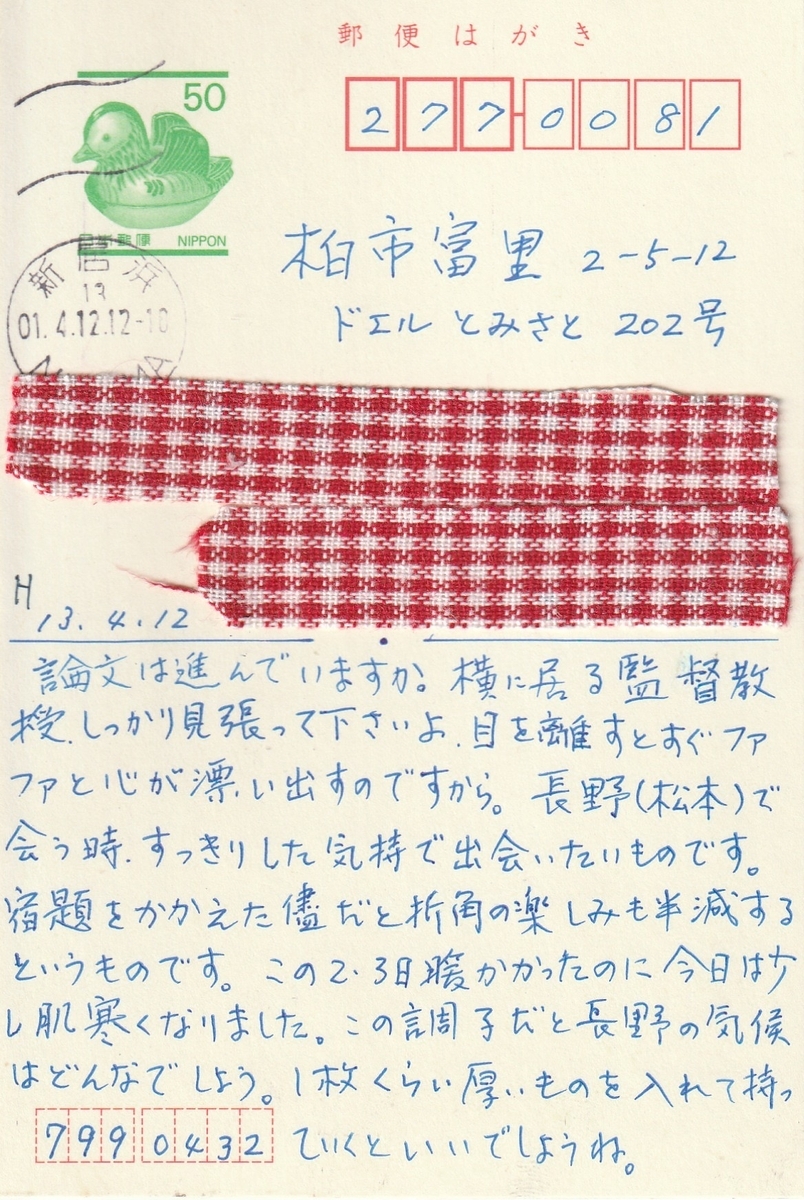 郵便はがき
50
日本郵便 NIPPON
277-0081
新居浜
01.4.12.12-18
柏市富里 2-5-12
ドエル とみさと 202号
H
13.4.12
論文は進んでいますか。横に居る監督教
授、しっかり見張って下さいよ、目を離すとすぐファ
ファと心が漂い出すのですから。長野(松本)で
会う時、すっきりした気持で出会いたいものです。
宿題をかかえた儘だと折角の楽しみも半減する
というものです。この2・3日暖かかったのに今日は少
し肌寒くなりました。この調子だと長野の気候
はどんなでしょう。1枚くらい厚いものを入れて持っ
ていくといいでしょうね。
7990432